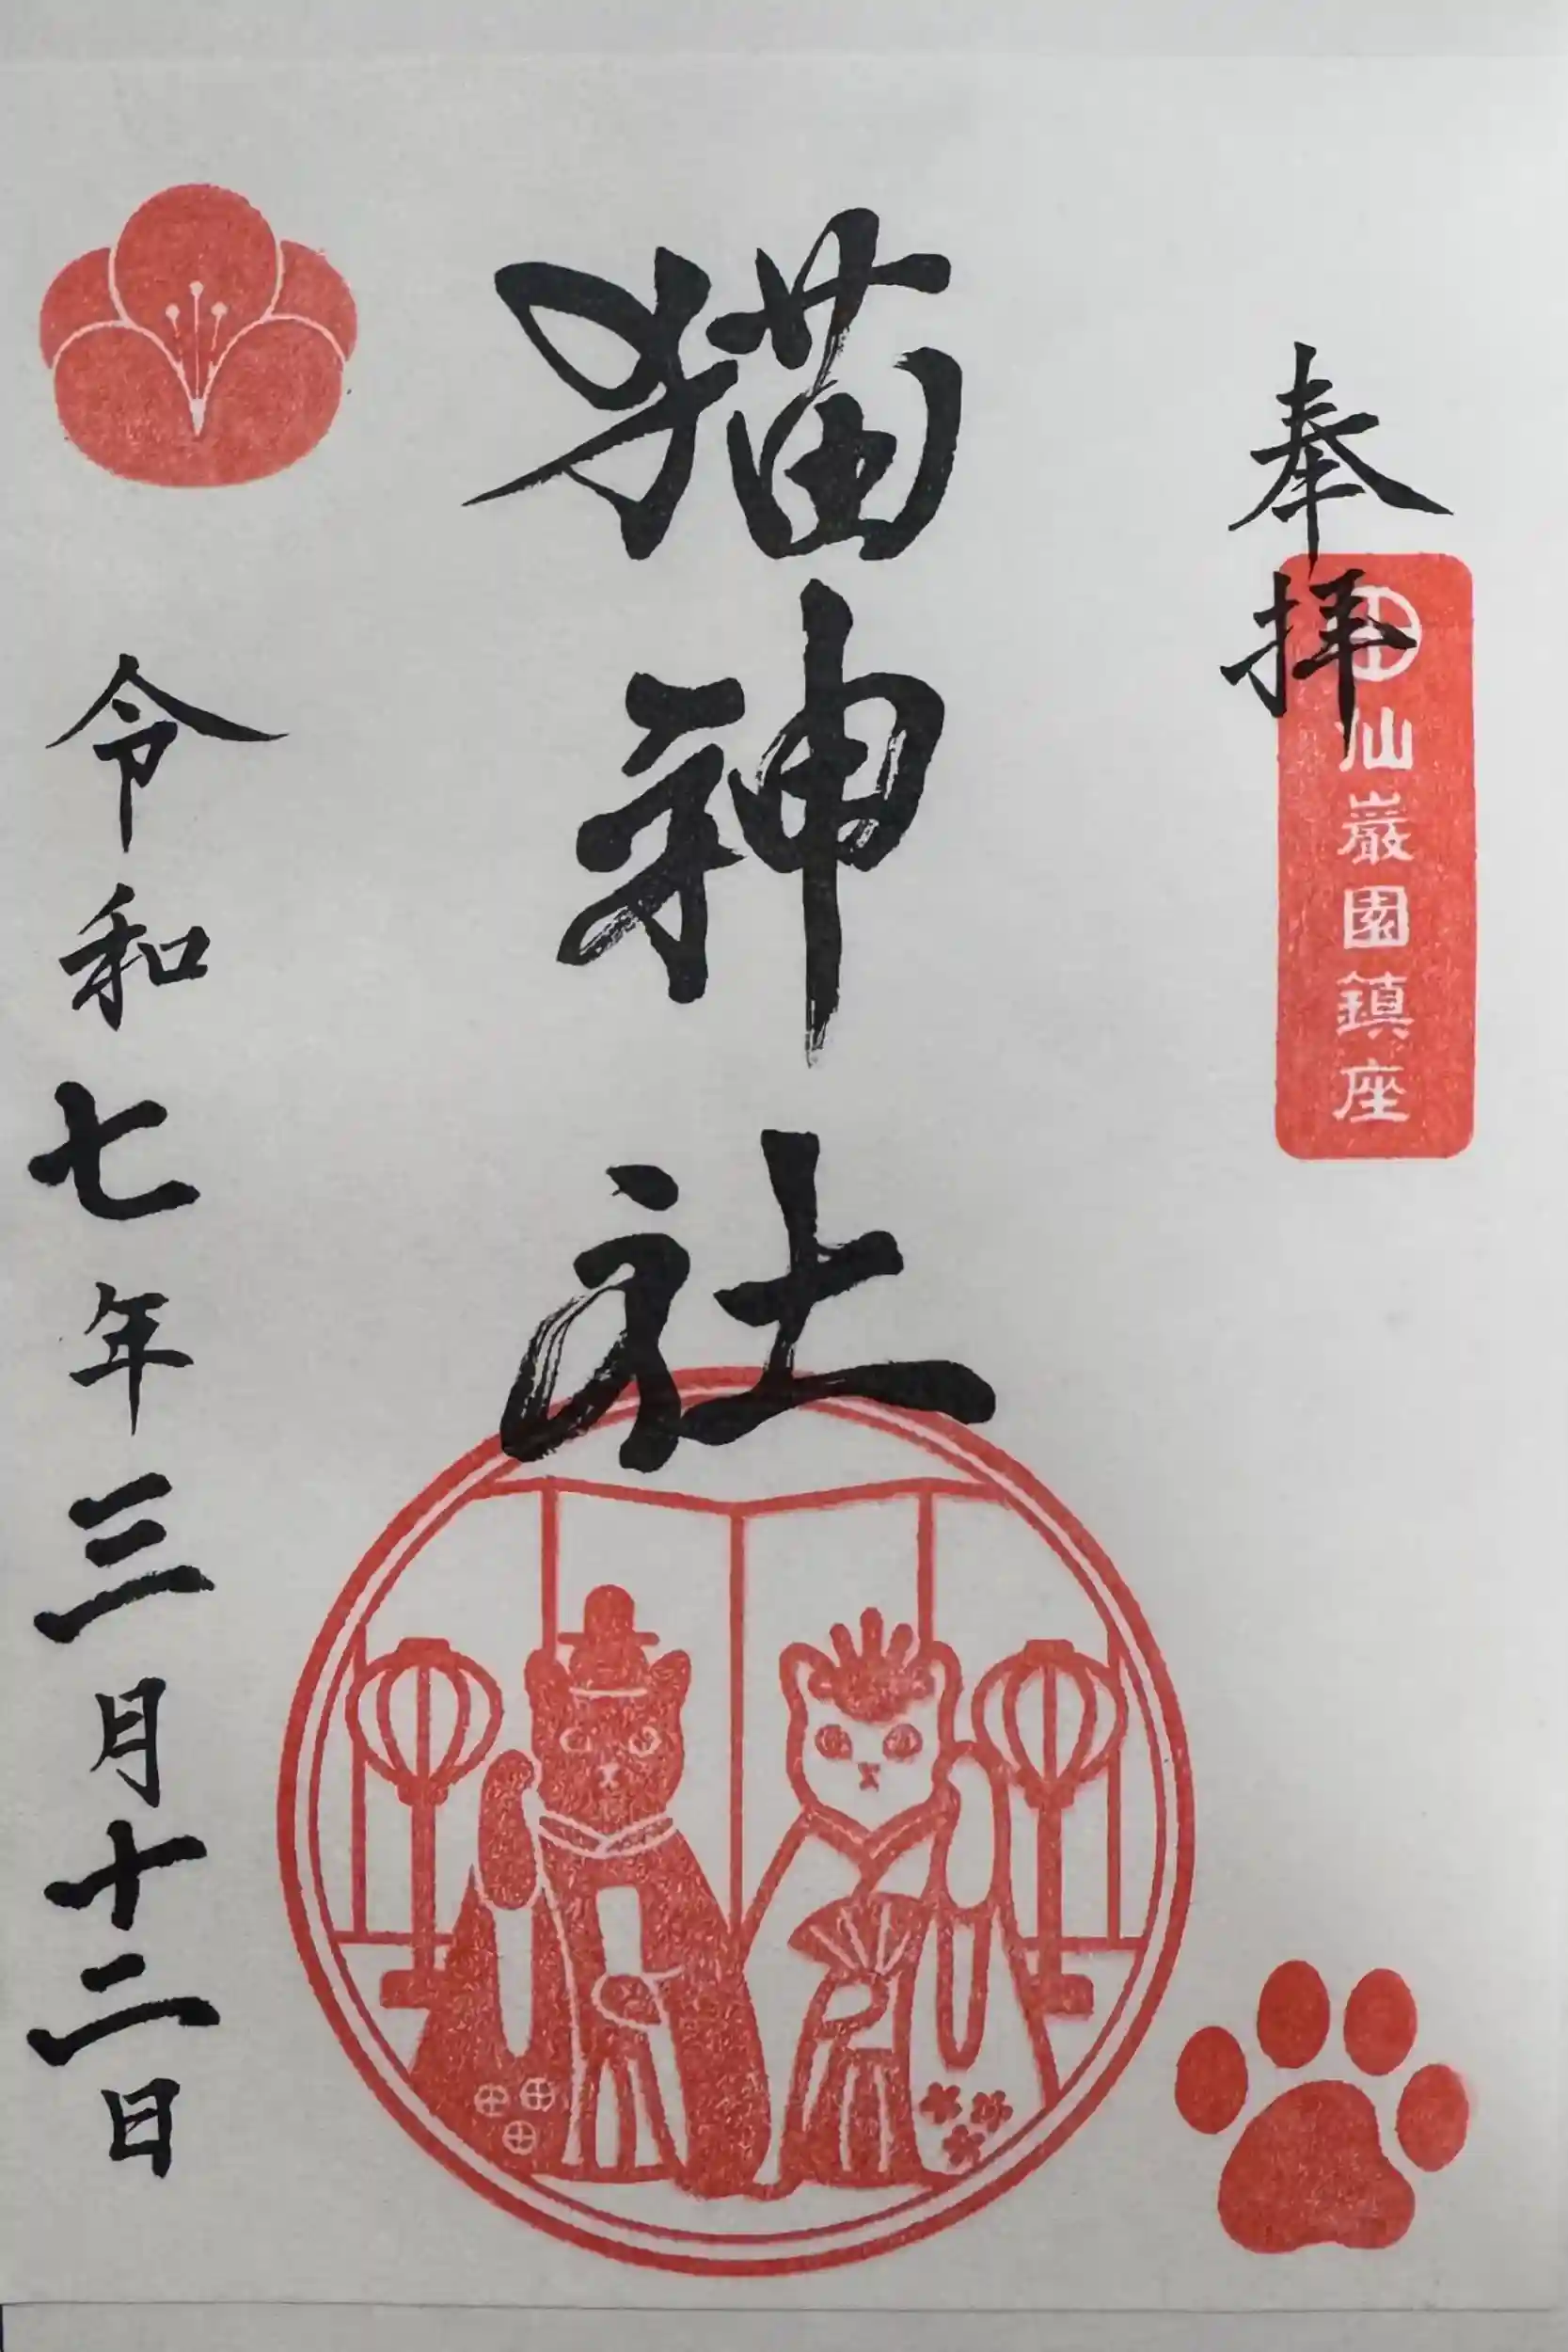 奉拝
仙巖園鎮座
猫神社
令和七年三月十二日